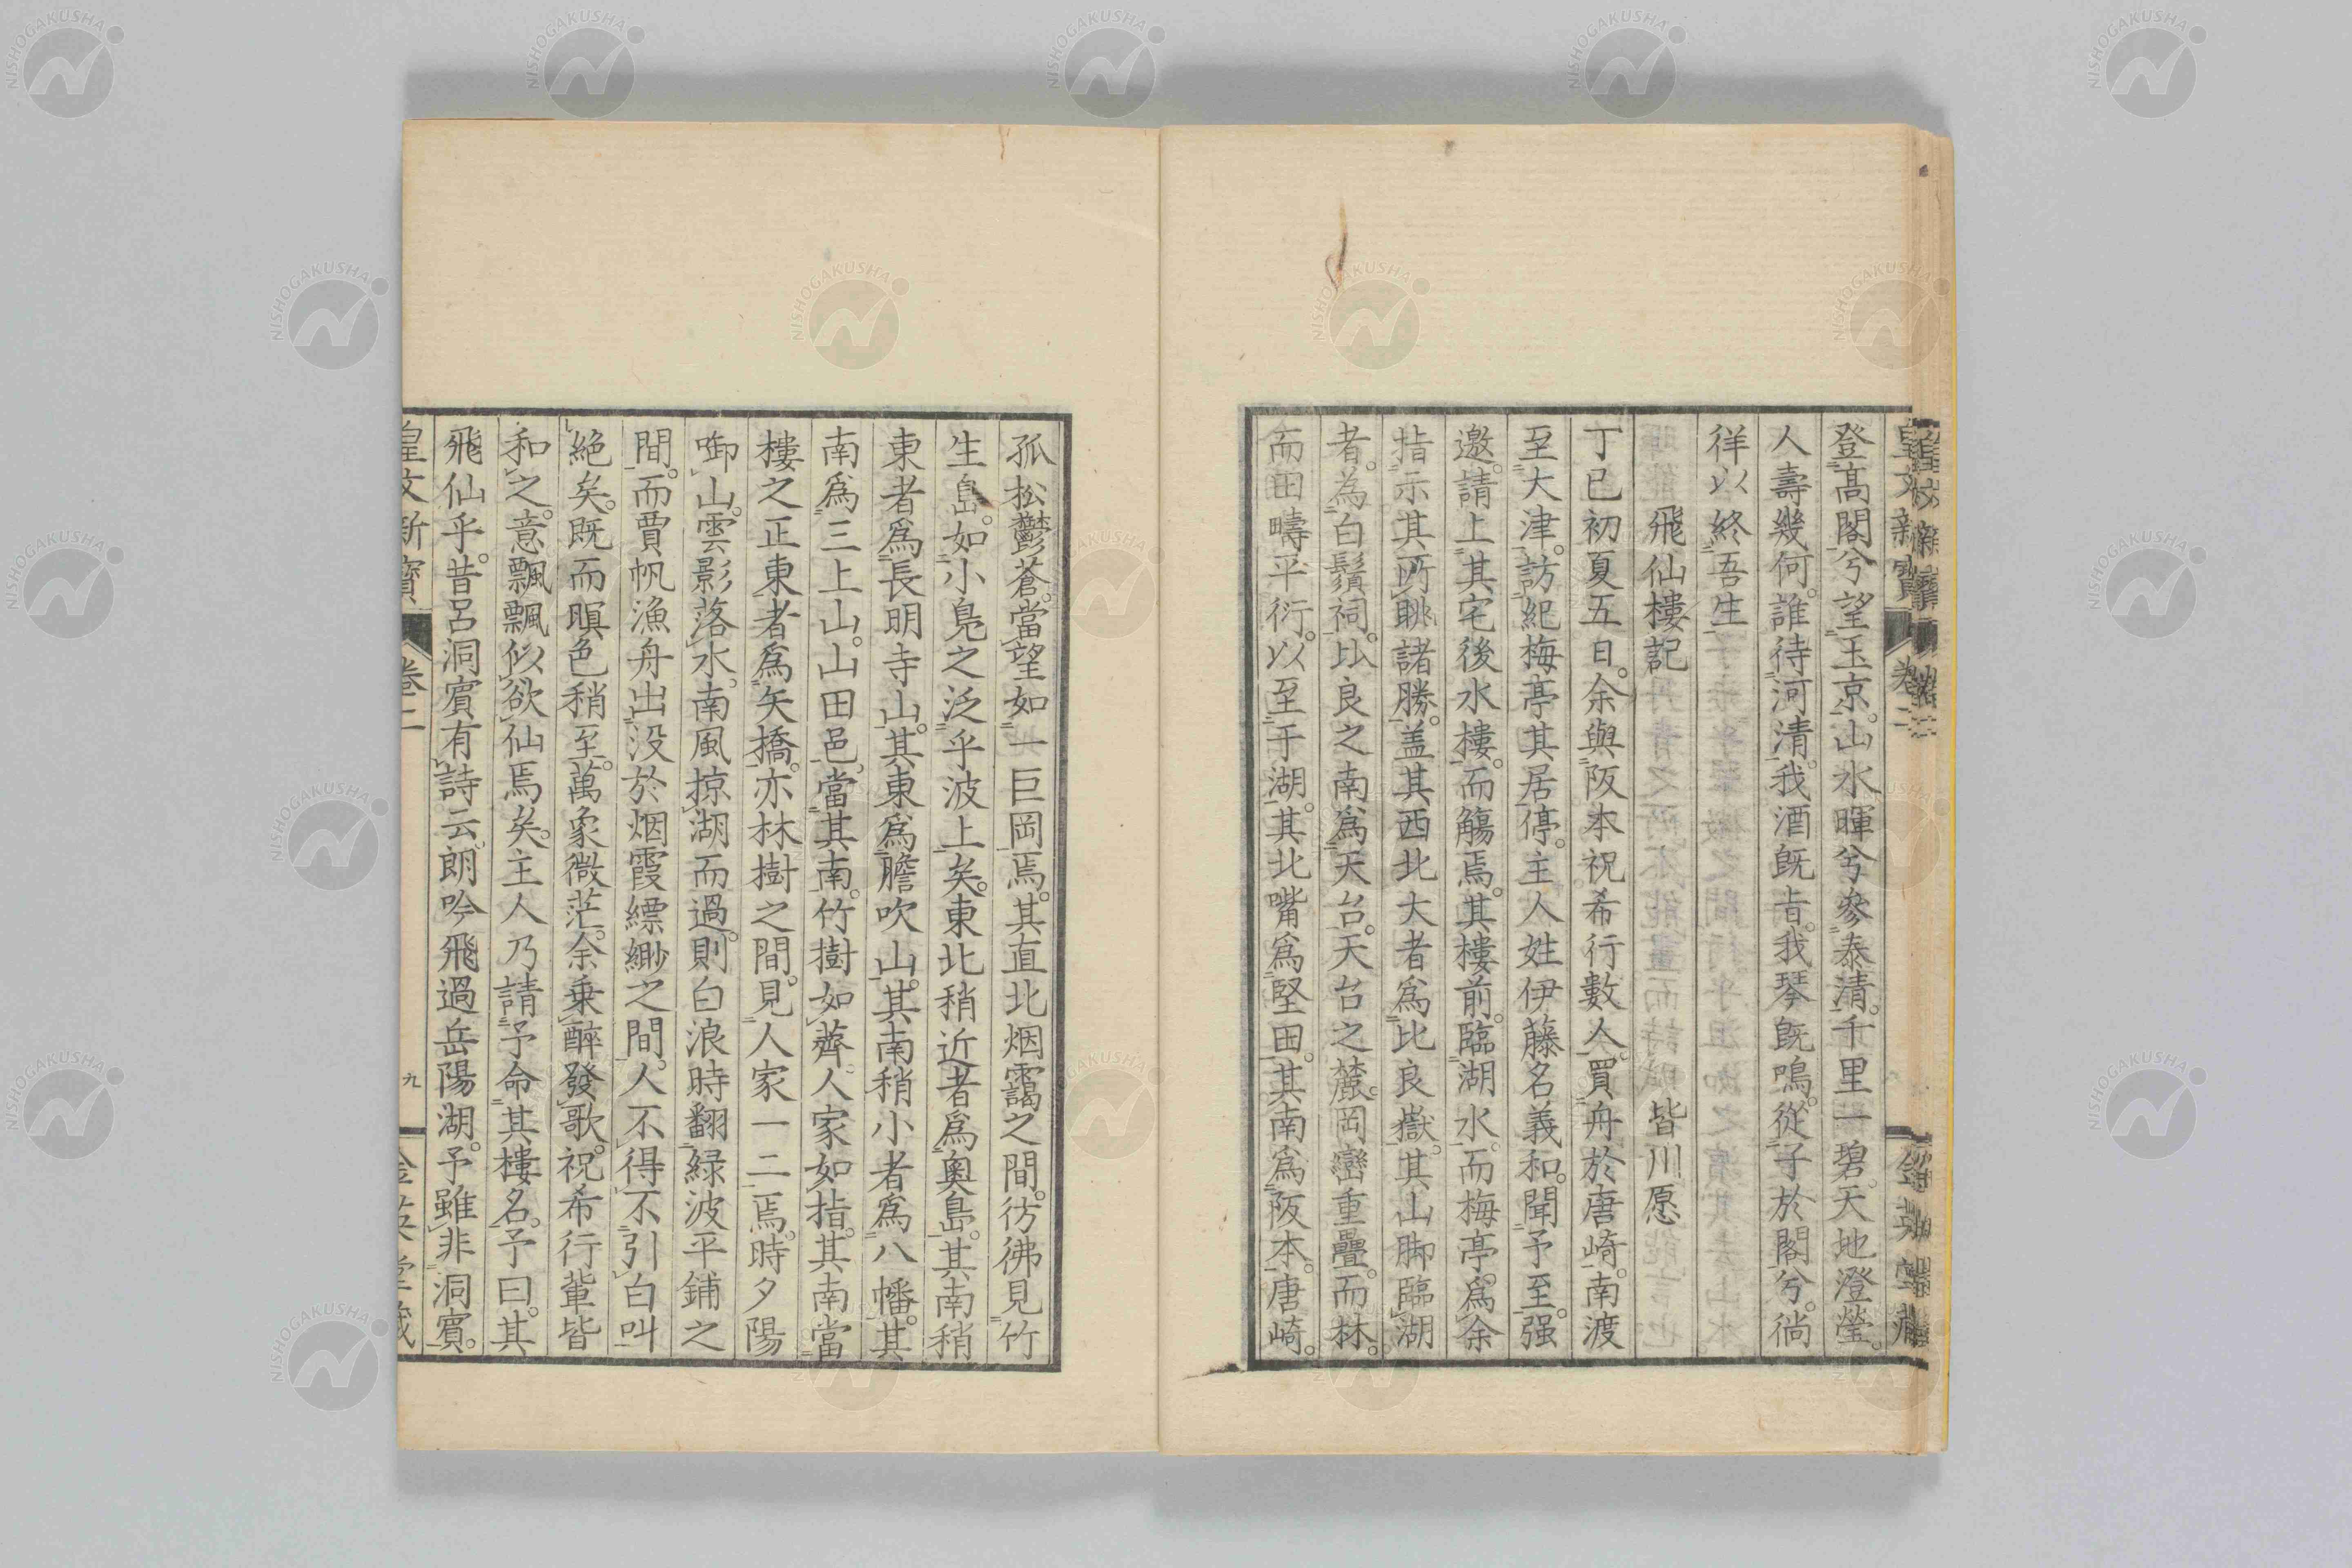 登高閣兮望玉京。山水暉兮參泰清。千里一碧。天地澄瑩。
人壽幾何。誰待河清。我酒既旨。我琴既鳴。從子於閣兮。徜
徉以終吾生
飛仙樓記 皆川愿
丁巳初夏五日。余與阪本祝希行數人。買舟於唐崎。南渡
至大津。訪紀梅亭其居停。主人姓伊藤名義和。聞予至。强
邀。請上其宅後水樓。而觴焉。其樓前。臨湖水。而梅亭。爲余
指示其所眺諸勝。盖其西北大者爲比良嶽。其山脚臨湖
者。為白鬚祠。比良之南爲天台。天台之麓。岡巒重疊。而林。
而田疇平衍。以至于湖。其北嘴爲堅田。其南爲阪本。唐崎。
孤松鬱蒼。當望如一巨岡焉。其直北烟靄之間。彷彿見竹
生島。如小鳧之泛乎波上矣。東北稍近者爲奥島。其南稍
東者爲長明寺山。其東爲膽吹山。其南稍小者爲八幡。其
南爲三上山。山田邑。當其南。竹樹如薺。人家如指。其南當
樓之正東者爲矢橋。亦林樹之間。見人家一二焉。時夕陽
啣山。雲影落水。南風掠湖而過。則白浪時翻。緑波平鋪之
間。而賈帆漁舟出没於烟霞縹緲之間。人不得不引白叫
絶矣。既而暝色稍至。萬象微茫。余乗醉發歌。祝希行輩皆
和之。意飄飄似欲仙焉矣。主人乃請予命其樓名。予曰。其
飛仙乎。昔呂洞賓有詩云。朗吟飛過岳陽湖。予雖非洞賓。
皇文新寶 卷二 九 金英堂藏